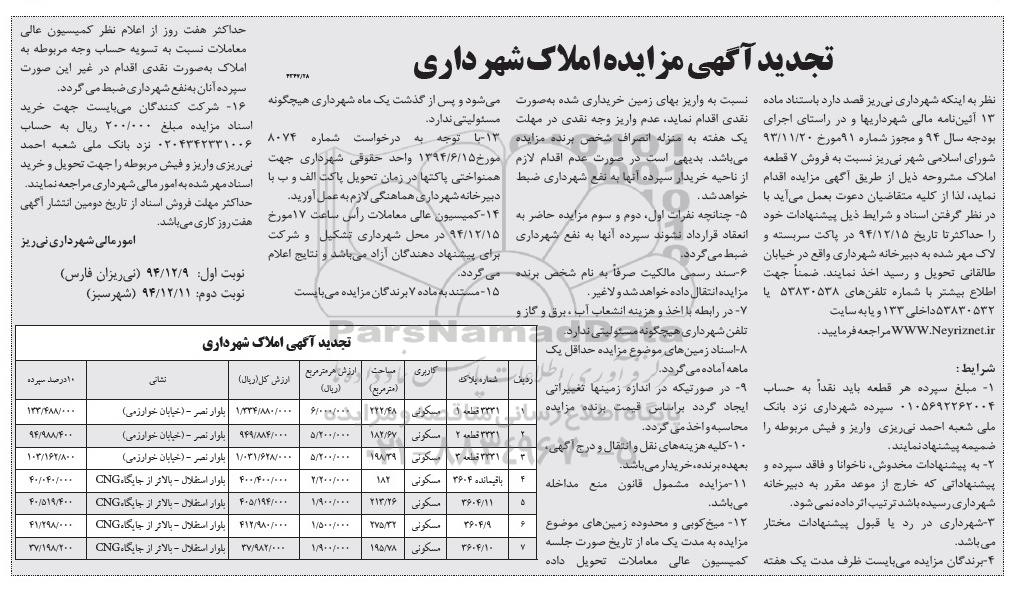 تجدید آگهی مزایده املاک شهرداری
۴۳۴۷/۲۸
نظر به اینکه شهرداری نی‌ریز قصد دارد باستناد ماده
۱۳ آئین‌نامه مالی شهرداریها و در راستای اجرای
بودجه سال ۹۴ و مجوز شماره ۹۱مورخ ۹۳/۱۱/۲۰
شورای اسلامی شهر نی‌ریز نسبت به فروش ۷ قطعه
املاک مشروحه ذیل از طریق آگهی مزایده اقدام
نماید، لذا از کلیه متقاضیان دعوت بعمل می‌آید با
در نظر گرفتن اسناد و شرایط ذیل پیشنهادات خود
را حداکثر تا تاریخ ۹۴/۱۲/۱۵ در پاکت سربسته و
لاک مهر شده به دبیرخانه شهرداری واقع در خیابان
طالقانی تحویل و رسید اخذ نمایند. ضمناً جهت
اطلاع بیشتر با شماره تلفن‌های ۵۳۸۳۰۵۳۸ یا
۵۳۸۳۰۵۳۲داخلی ۱۳۳ و یا به سایت
WWW.Neyriznet.ir مراجعه فرمایید.
شرایط :
۱- مبلغ سپرده هر قطعه باید نقداً به حساب
۰۱۰۵۶۹۲۲۶۲۰۰۴ سپرده شهرداری نزد بانک
ملی شعبه احمد نی‌ریزی واریز و فیش مربوطه را
ضمیمه پیشنهاد نمایند.
۲- به پیشنهادات مخدوش، ناخوانا و فاقد سپرده و
پیشنهاداتی که خارج از موعد مقرر به دبیرخانه
شهرداری رسیده باشد ترتیب اثر داده نمی شود.
۳-شهرداری در رد یا قبول پیشنهادات مختار
می‌باشد.
۴-برندگان مزایده می‌بایست ظرف مدت یک هفته
نسبت به واریز بهای زمین خریداری شده به‌صورت
نقدی اقدام نماید، عدم واریز وجه نقدی در مهلت
یک هفته به منزله انصراف شخص برنده مزایده
می‌باشد. بدیهی است در صورت عدم اقدام لازم
از ناحیه خریدار سپرده آنها به نفع شهرداری ضبط
خواهد شد.
۵- چنانچه نفرات اول، دوم و سوم مزایده حاضر به
انعقاد قرارداد نشوند سپرده آنها به نفع شهرداری
ضبط می‌گردد.
۶-سند رسمی مالکیت صرفاً به نام شخص برنده
مزایده انتقال داده خواهد شد و لاغیر.
۷- در رابطه با اخذ و هزینه انشعاب آب ، برق و گاز و
تلفن شهرداری هیچگونه مسئولیتی ندارد.
۸-اسناد زمین‌های موضوع مزایده حداقل یک
ماهه آماده می‌گردد.
۹- در صورتیکه در اندازه زمینها تغییراتی
ایجاد گردد براساس قیمت برنده مزایده
محاسبه و اخذ می‌گردد.
۱۰-کلیه هزینه‌های نقل و انتقال و درج آگهی،
بعهده برنده،خریدار می‌باشد.
۱۱-مزایده مشمول قانون منع مداخله
می‌باشد.
۱۲- میخ‌کوبی و محدوده زمین‌های موضوع
مزایده به مدت یک ماه از تاریخ صورت جلسه
کمیسیون عالی معاملات تحویل داده
می‌شود و پس از گذشت یک ماه شهرداری هیچگونه
مسئولیتی ندارد.
۱۳-با توجه به درخواست شماره ۸۰۷۴
مورخ۱۳۹۴/۶/۱۵ واحد حقوقی شهرداری جهت
همنواختی پاکتها در زمان تحویل پاکت الف و ب با
دبیرخانه شهرداری هماهنگی لازم به عمل آورید.
۱۴-کمیسیون عالی معاملات رأس ساعت ۱۷مورخ
۹۴/۱۲/۱۵ در محل شهرداری تشکیل و شرکت
برای پیشنهاد دهندگان آزاد می‌باشد و نتایج اعلام
می‌گردد.
۱۵-مستند به ماده ۷برندگان مزایده می‌بایست
حداکثر هفت روز از اعلام نظر کمیسیون عالی
معاملات نسبت به تسویه حساب وجه مربوطه به
املاک به‌صورت نقدی اقدام در غیر این صورت
سپرده آنان به‌نفع شهرداری ضبط می گردد.
۱۶- شرکت کنندگان می‌بایست جهت خرید
اسناد مزایده مبلغ ۲۰۰/۰۰۰ ریال به حساب
۰۲۰۴۳۴۲۳۳۱۰۰۶ نزد بانک ملی شعبه احمد
نی‌ریزی واریز و فیش مربوطه را جهت تحویل و خرید
اسناد مهر شده به امور مالی شهرداری مراجعه نمایند.
حداکثر مهلت فروش اسناد از تاریخ دومین انتشار آگهی
هفت روز کاری می‌باشد.
امور مالی شهرداری نی‌ریز
نوبت اول: ۹۴/۱۲/۹ (نی‌ریزان فارس)
نوبت دوم: ۹۴/۱۲/۱۱ (شهرسبز)
تجدید آگهی املاک شهرداری
ردیف شماره پلاک کاربری مساحت (مترمربع) ارزش هر مترمربع (ریال) ارزش کل(ریال) نشانی ۱۰درصد سپرده
۱ ۳۳۳۱ قطعه ۱ مسکونی ۲۲۲/۴۸ ۶/۰۰۰/۰۰۰ ۱/۳۳۴/۸۸۰/۰۰۰ بلوار نصر - (خیابان خوارزمی) ۱۳۳/۴۸۸/۰۰۰
۲ ۳۳۳۱ قطعه ۲ مسکونی ۱۸۲/۶۷ ۵/۲۰۰/۰۰۰ ۹۴۹/۸۸۴/۰۰۰ بلوار نصر - (خیابان خوارزمی) ۹۴/۹۸۸/۴۰۰
۳ ۳۳۳۱ قطعه ۳ مسکونی ۱۹۸/۳۹ ۵/۲۰۰/۰۰۰ ۱/۰۳۱/۶۲۸/۰۰۰ بلوار نصر - (خیابان خوارزمی) ۱۰۳/۱۶۲/۸۰۰
۴ باقیمانده ۳۶۰۴ مسکونی ۱۸۲ ۲/۲۰۰/۰۰۰ ۴۰۰/۴۰۰/۰۰۰ بلوار استقلال - بالاتر از جایگاه CNG ۴۰/۰۴۰/۰۰۰
۵ ۳۶۰۴/۱۱ مسکونی ۲۱۳/۲۶ ۱/۹۰۰/۰۰۰ ۴۰۵/۱۹۴/۰۰۰ بلوار استقلال - بالاتر از جایگاه CNG ۴۰/۵۱۹/۴۰۰
۶ ۳۶۰۴/۹ مسکونی ۲۷۵/۳۲ ۱/۵۰۰/۰۰۰ ۴۱۲/۹۸۰/۰۰۰ بلوار استقلال - بالاتر از جایگاه CNG ۴۱/۲۹۸/۰۰۰
۷ ۳۶۰۴/۱۰ مسکونی ۱۹۵/۷۸ ۱/۹۰۰/۰۰۰ ۳۷/۹۸۲/۰۰۰ بلوار استقلال - بالاتر از جایگاه CNG ۳۷/۱۹۸/۲۰۰
ParsNamadData